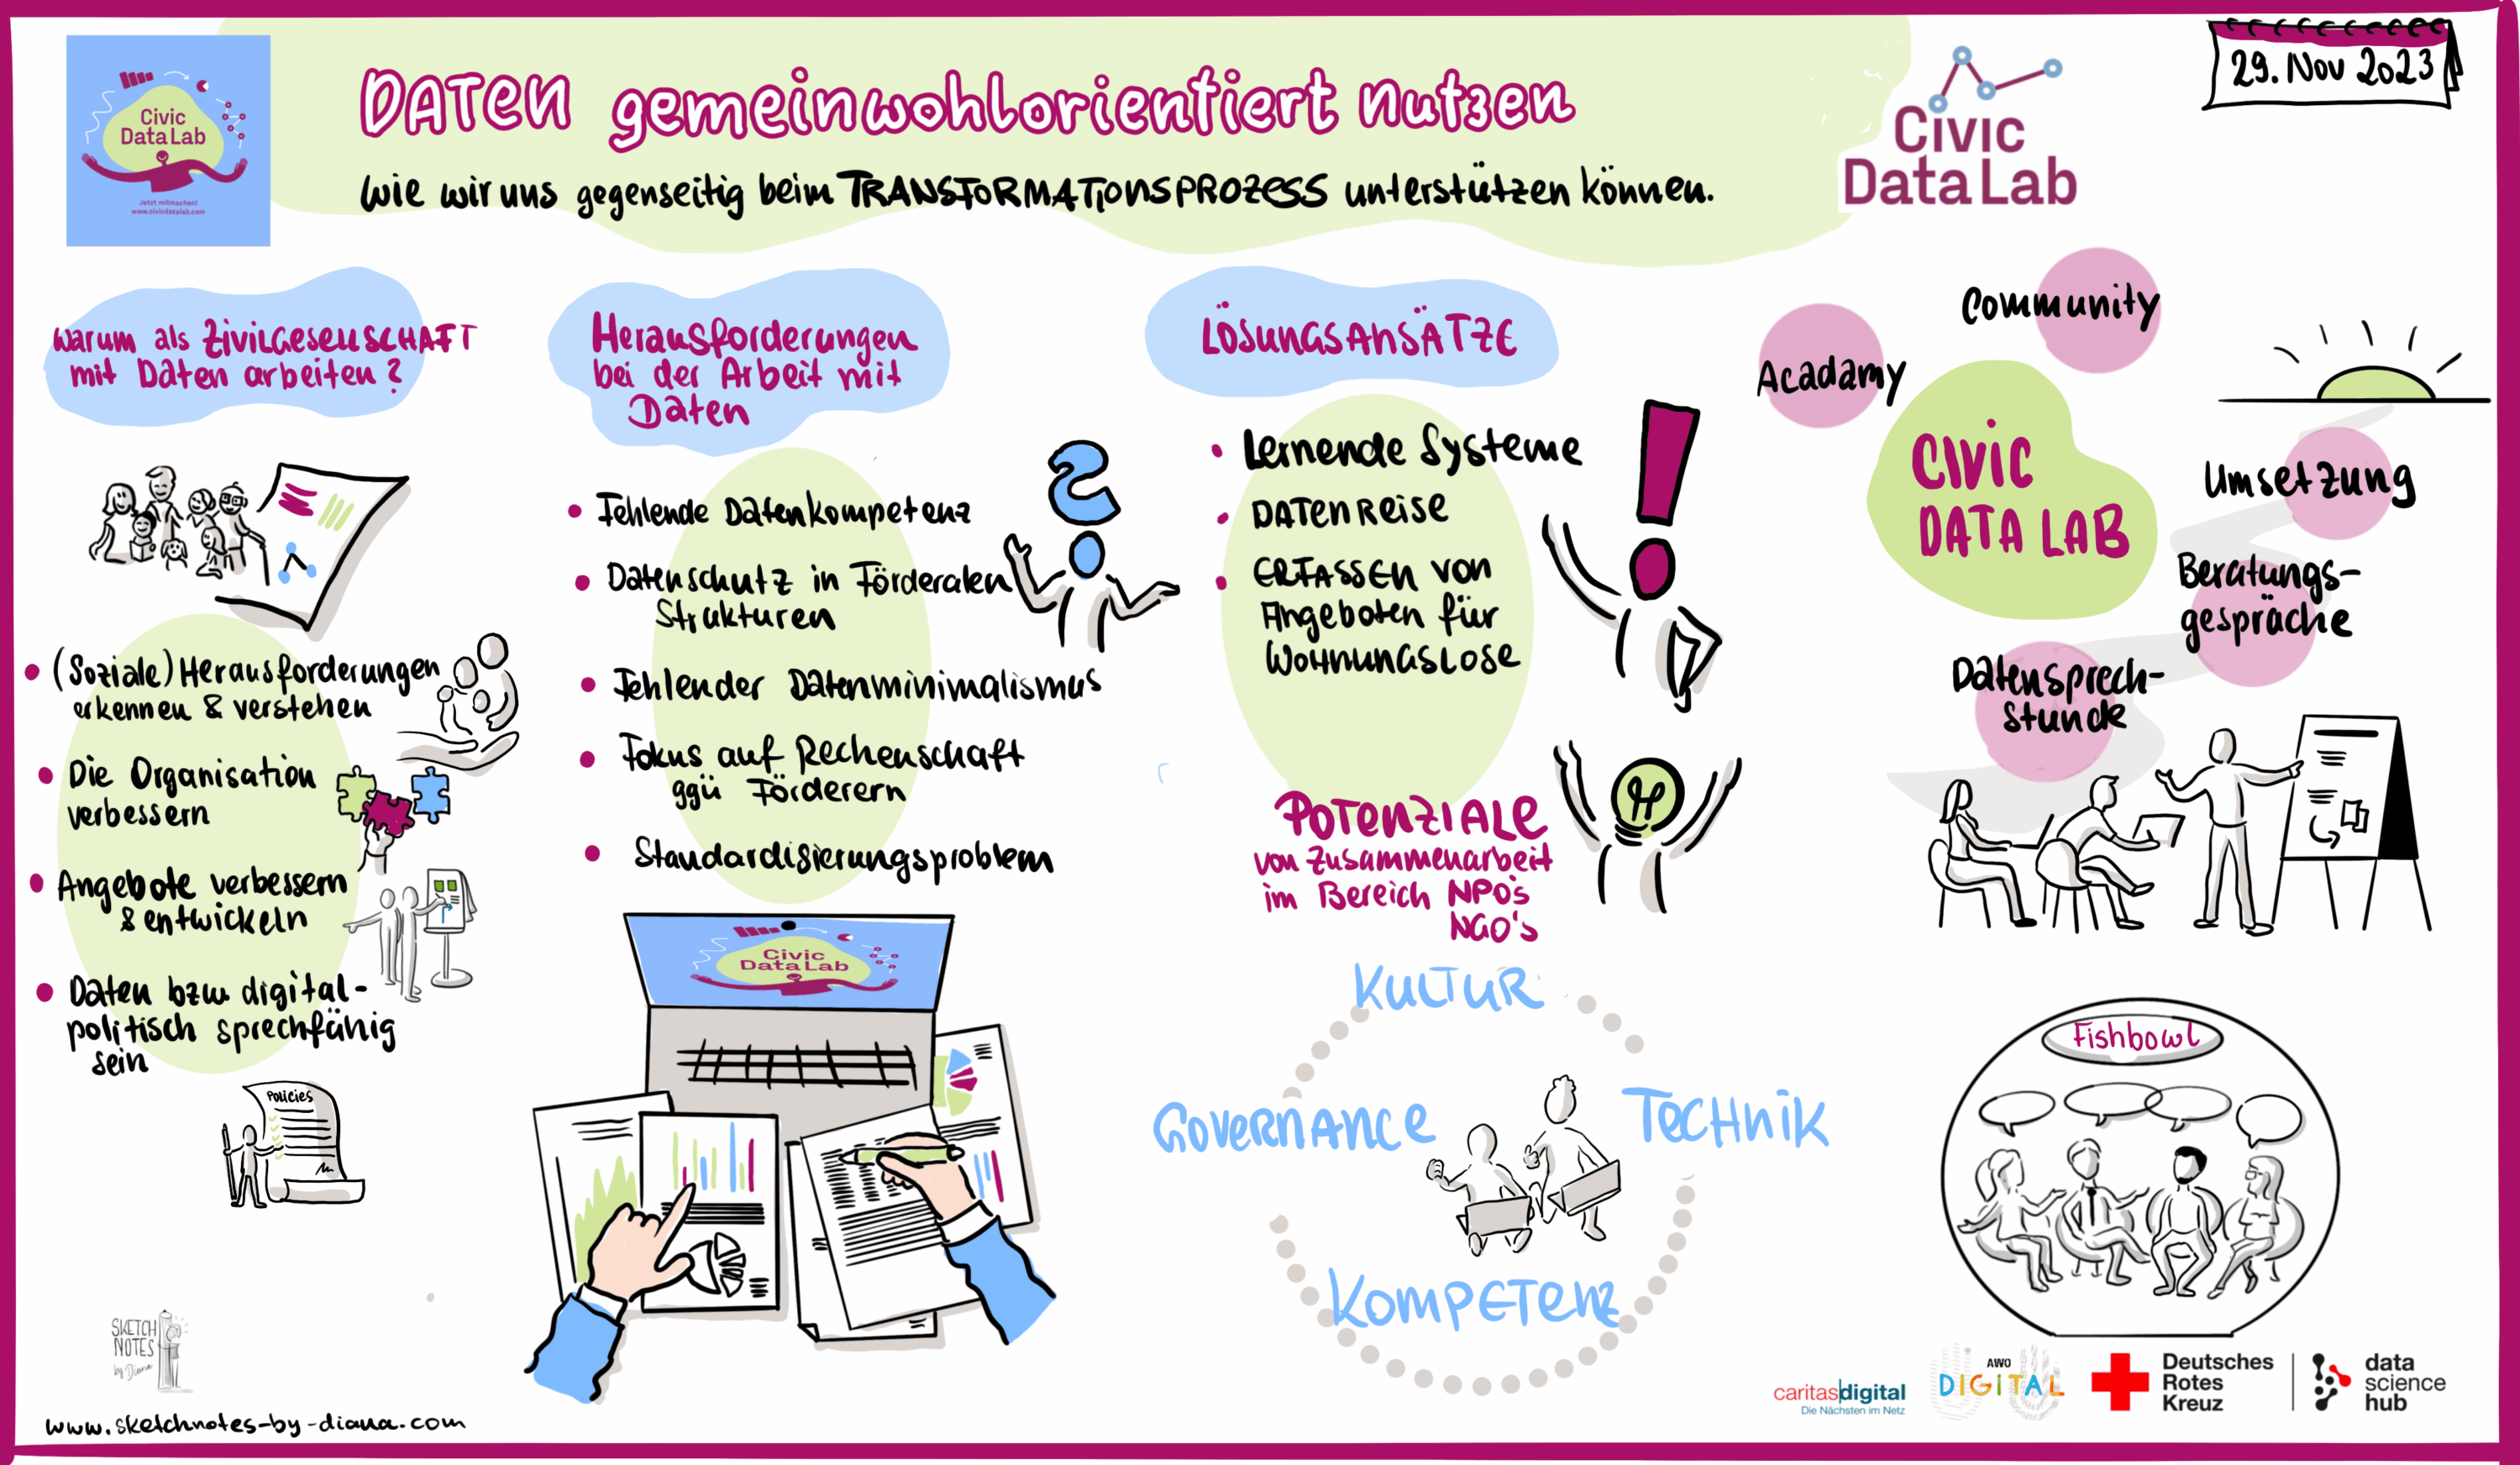 Civic
Data Lab
Jetzt mitmachen!
www.civicdatalab.com
DATEN gemeinwohlorientiert nutzen
Wie wir uns gegenseitig beim TRANSFORMATIONSPROZESS unterstützen können.
Civic
Data Lab
29. Nov 2023
Warum als ZIVILGESELLSCHAFT
mit Daten arbeiten?
(Soziale) Herausforderungen
erkennen & verstehen
Die Organisation
verbessern
Angebote verbessern
& entwickeln
Daten bzw. digital-
politisch sprechfähig
sein
Policies
SKETCH
NOTES
by Diana
www.sketchnotes-by-diana.com
Herausforderungen
bei der Arbeit mit
Daten
Fehlende Datenkompetenz
Datenschutz in Förderalen
Strukturen
Fehlender Datenminimalismus
Fokus auf Rechenschaft
ggü Förderern
Standardisierungsproblem
Civic
Data Lab
LÖSUNGSANSÄTZE
Lernende Systeme
DATENREISE
ERFASSEN VON
Angeboten für
WOHNUNGSLOSE
POTENZIALE
von Zusammenarbeit
im Bereich NPO's
NGO's
KULTUR
GOVERNANCE
TECHNIK
KOMPETENZ
Community
Acadamy
CIVIC
DATA LAB
Umsetzung
Beratungs-
gespräche
Datensprech-
stunde
Fishbowl
caritasdigital
Die Nächsten im Netz
AWO
DIGITAL
Deutsches
Rotes
Kreuz
data
science
hub